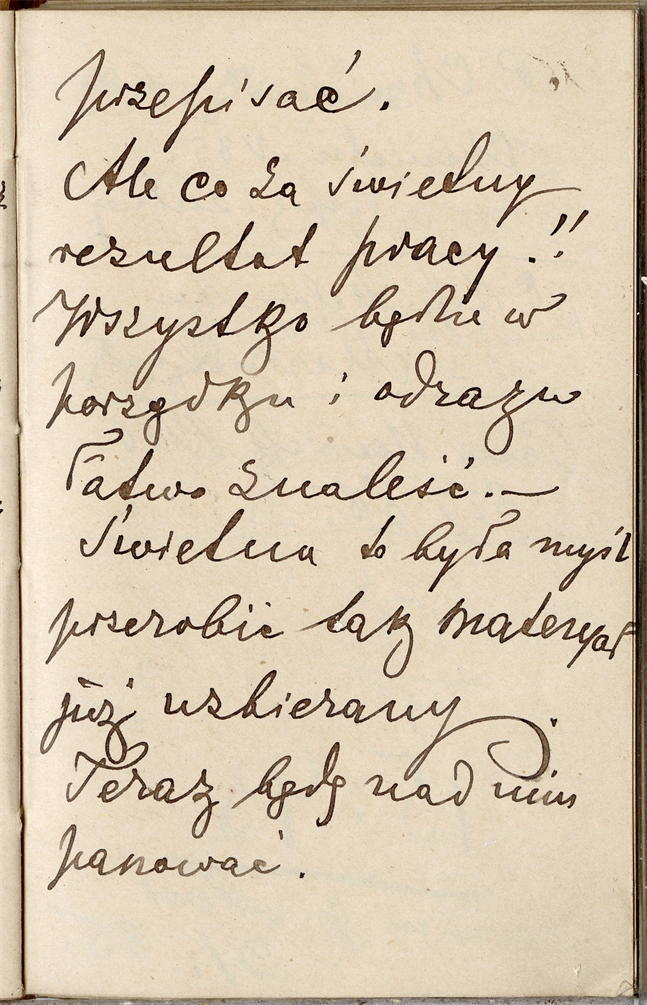 przepisać.
Ale co za świetny
rezultat pracy!!
Wszystko będzie w
porządku i odrazu
łatwo znaleść. —
Świetna to była myśl
przerobić tak materyał
już uzbierany.
Teraz będę nad nim
panować.